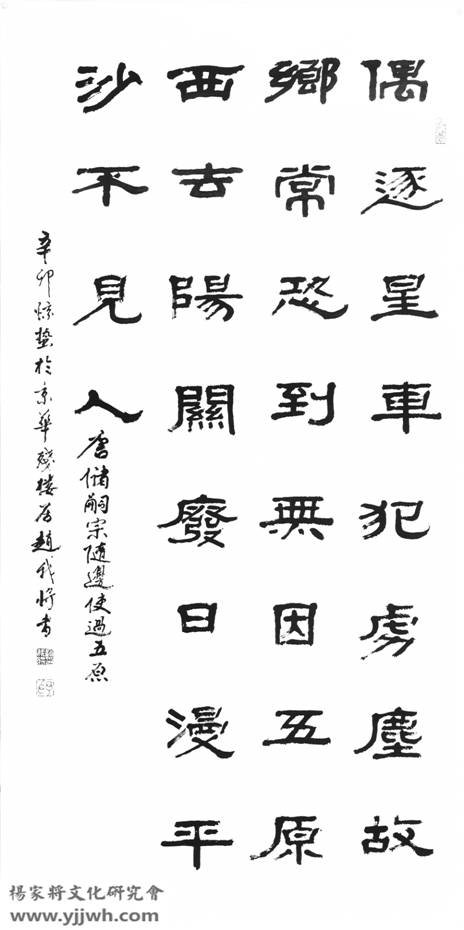 偶逐星車犯虜塵故
鄉常恐到無因五原
西去陽關廢日漫平
沙不見人
唐儲嗣宗隨邊使過五原
辛卯惊蟄於京華樓趙書
楊家將文化研究會
www.yjjwh.com